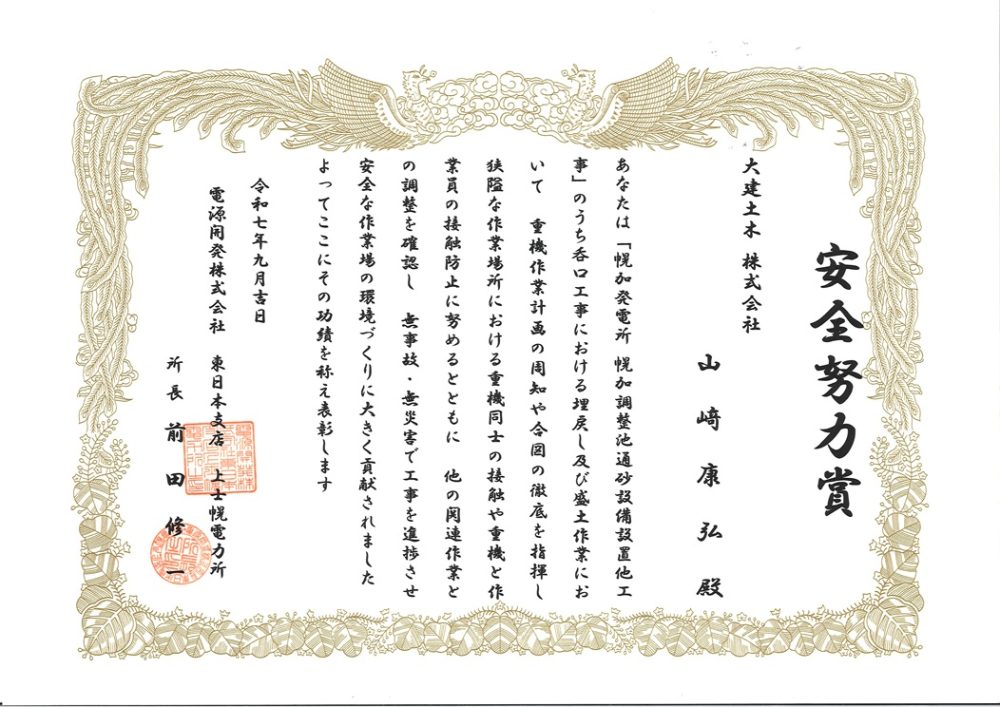 安全努力賞
大建土木 株式会社
山﨑康弘殿
あなたは「幌加発電所 幌加調整池通砂設備設置他工
事」のうち呑口工事における埋戻し及び盛土作業にお
いて 重機作業計画の周知や合図の徹底を指揮し
狭隘な作業場所における重機同士の接触や重機と作
業員の接触防止に努めるとともに 他の関連作業と
の調整を確認し 無事故・無災害で工事を進捗させ
安全な作業場の環境づくりに大きく貢献されました
よってここにその功績を称え表彰します
令和七年九月吉日
電源開発株式会社 東日本支店 上士幌電力所
所長 前田修一